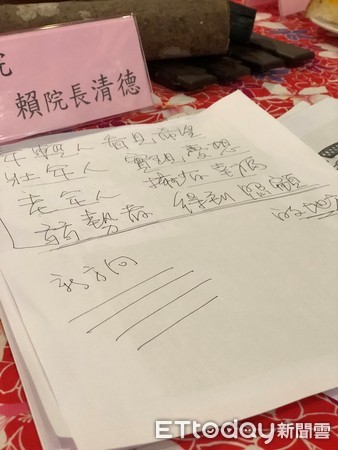 賴院長清德
年輕人 看見希望
壯年人 實現夢想
老年人
弱勢者 得到照顧
的地
新方向
ETtoday新聞雲